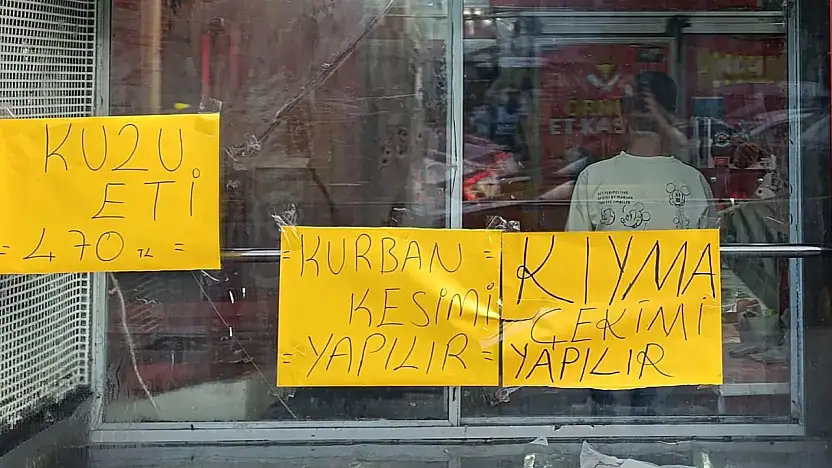 KUZU
ETİ
= 470 TL =
= KURBAN =
KESİMİ
= YAPILIR =
KIYMA
ÇEKİMİ
YAPILIR
ET.KAS